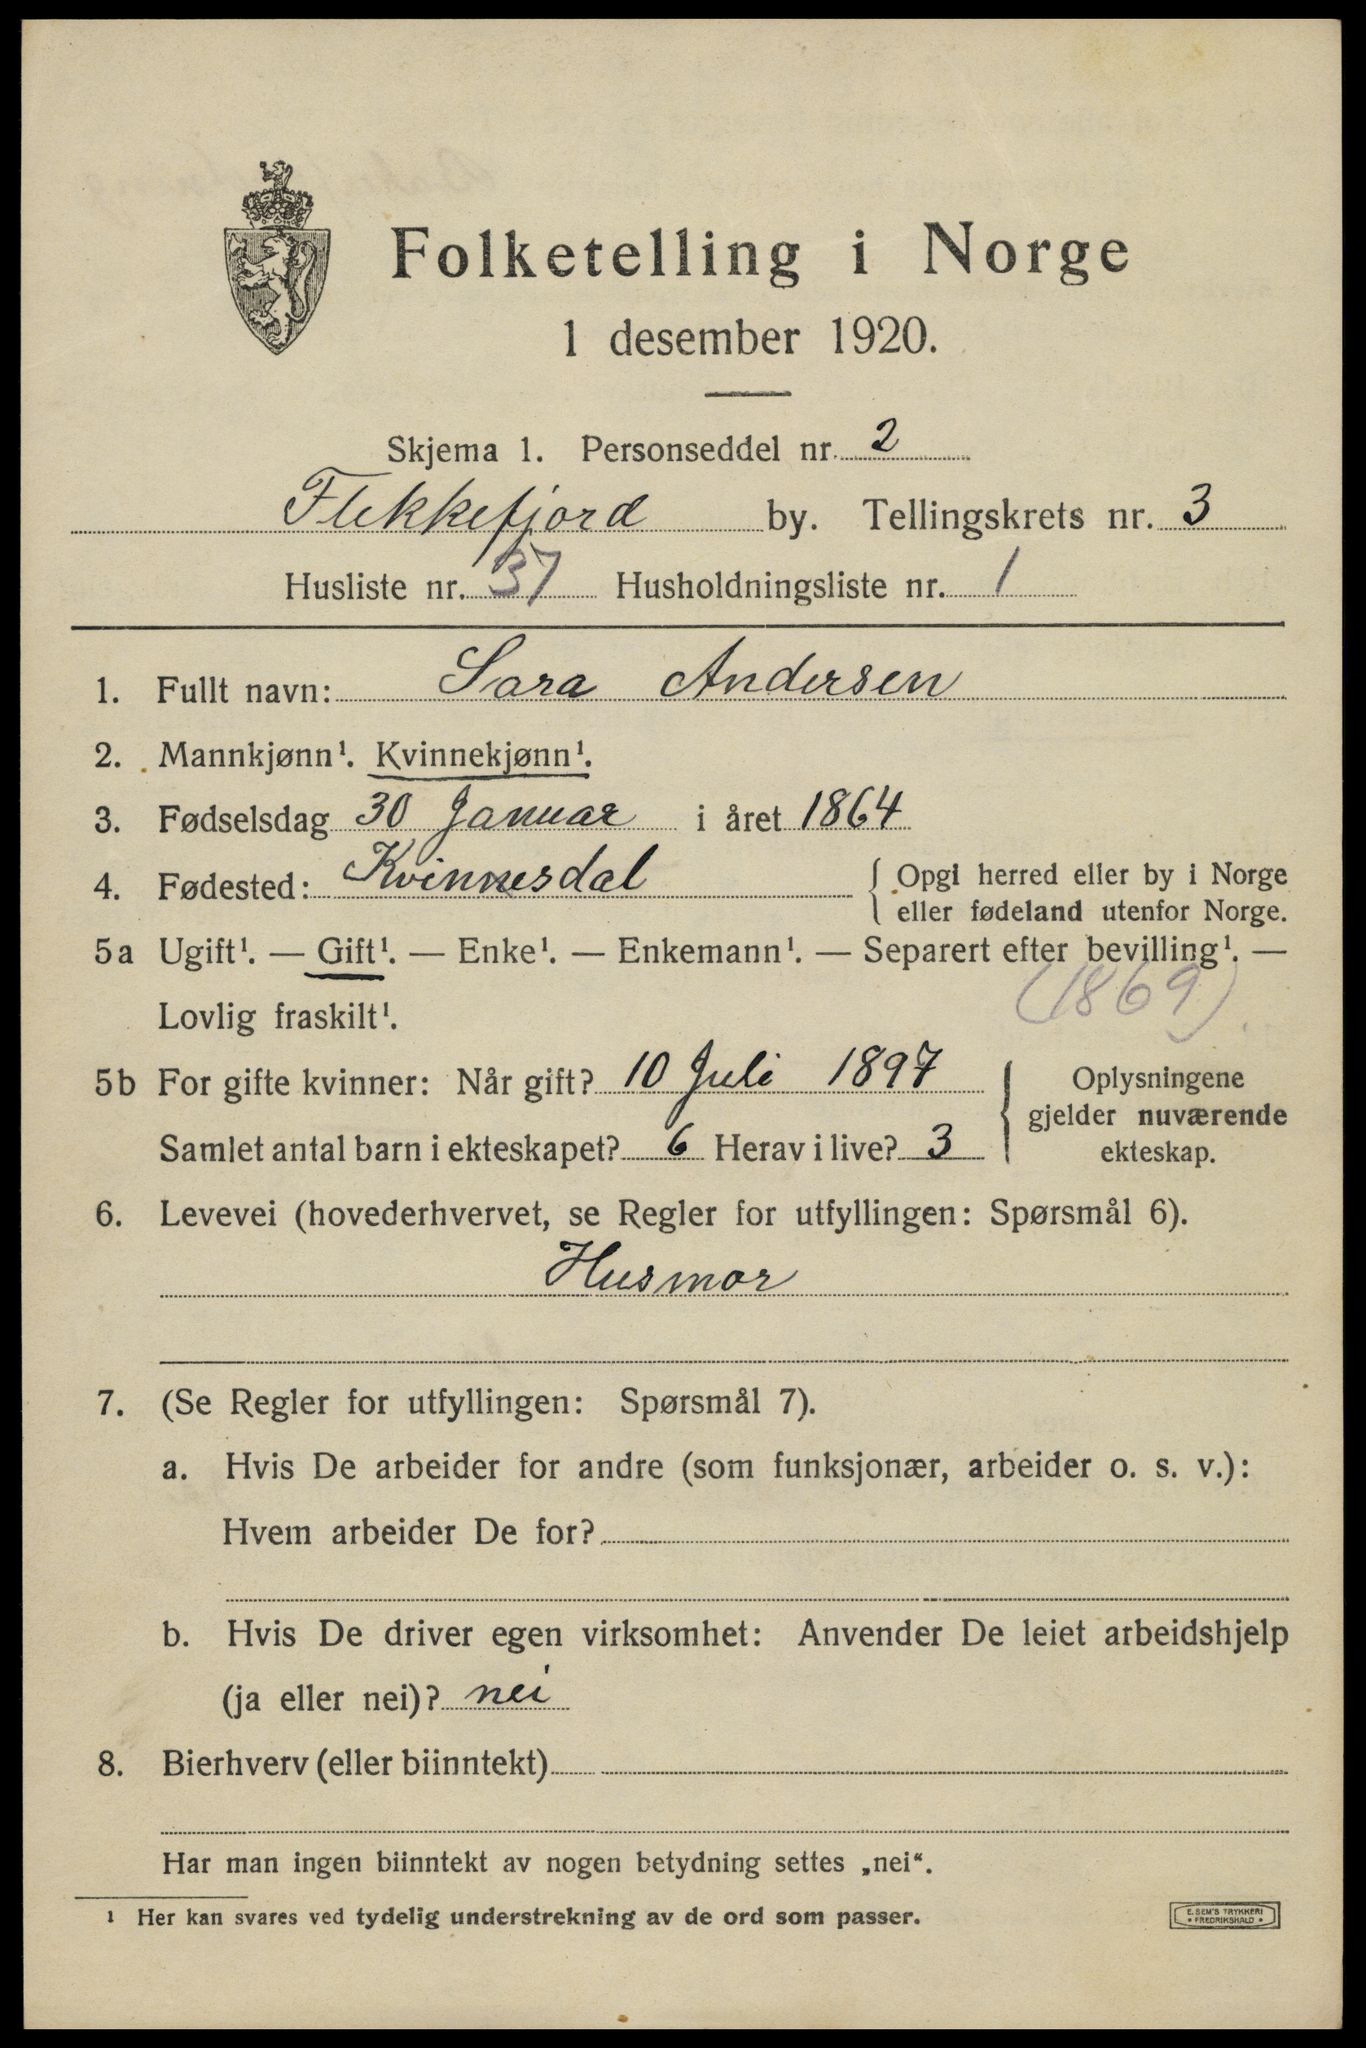 Folketelling i Norge
1 desember 1920.
Skjema 1. Personseddel nr. 2
Flekkefjord by. Tellingskrets nr. 3
Husliste nr. 37 Husholdningsliste nr. 1
1. Fullt navn: Sara Andersen
2. Mannkjønn¹. Kvinnekjønn¹.
3. Fødselsdag 30 Januar i året 1864
4. Fødested: Kvinnesdal { Opgi herred eller by i Norge
eller fødeland utenfor Norge.
5a Ugift¹. — Gift¹. — Enke¹. — Enkemann¹. — Separert efter bevilling¹. —
Lovlig fraskilt¹. (1869)
5b For gifte kvinner: Når gift? 10 Juli 1897 { Oplysningene
gjelder nuværende
Samlet antal barn i ekteskapet? 6 Herav i live? 3 ekteskap.
6. Levevei (hovederhvervet, se Regler for utfyllingen: Spørsmål 6).
Husmor
7. (Se Regler for utfyllingen: Spørsmål 7).
a. Hvis De arbeider for andre (som funksjonær, arbeider o. s. v.):
Hvem arbeider De for?
b. Hvis De driver egen virksomhet: Anvender De leiet arbeidshjelp
(ja eller nei)? nei
8. Bierhverv (eller biinntekt)
Har man ingen biinntekt av nogen betydning settes „nei“.
¹ Her kan svares ved tydelig understrekning av de ord som passer.
E. SEM'S TRYKKERI
* FREDRIKSHALD *